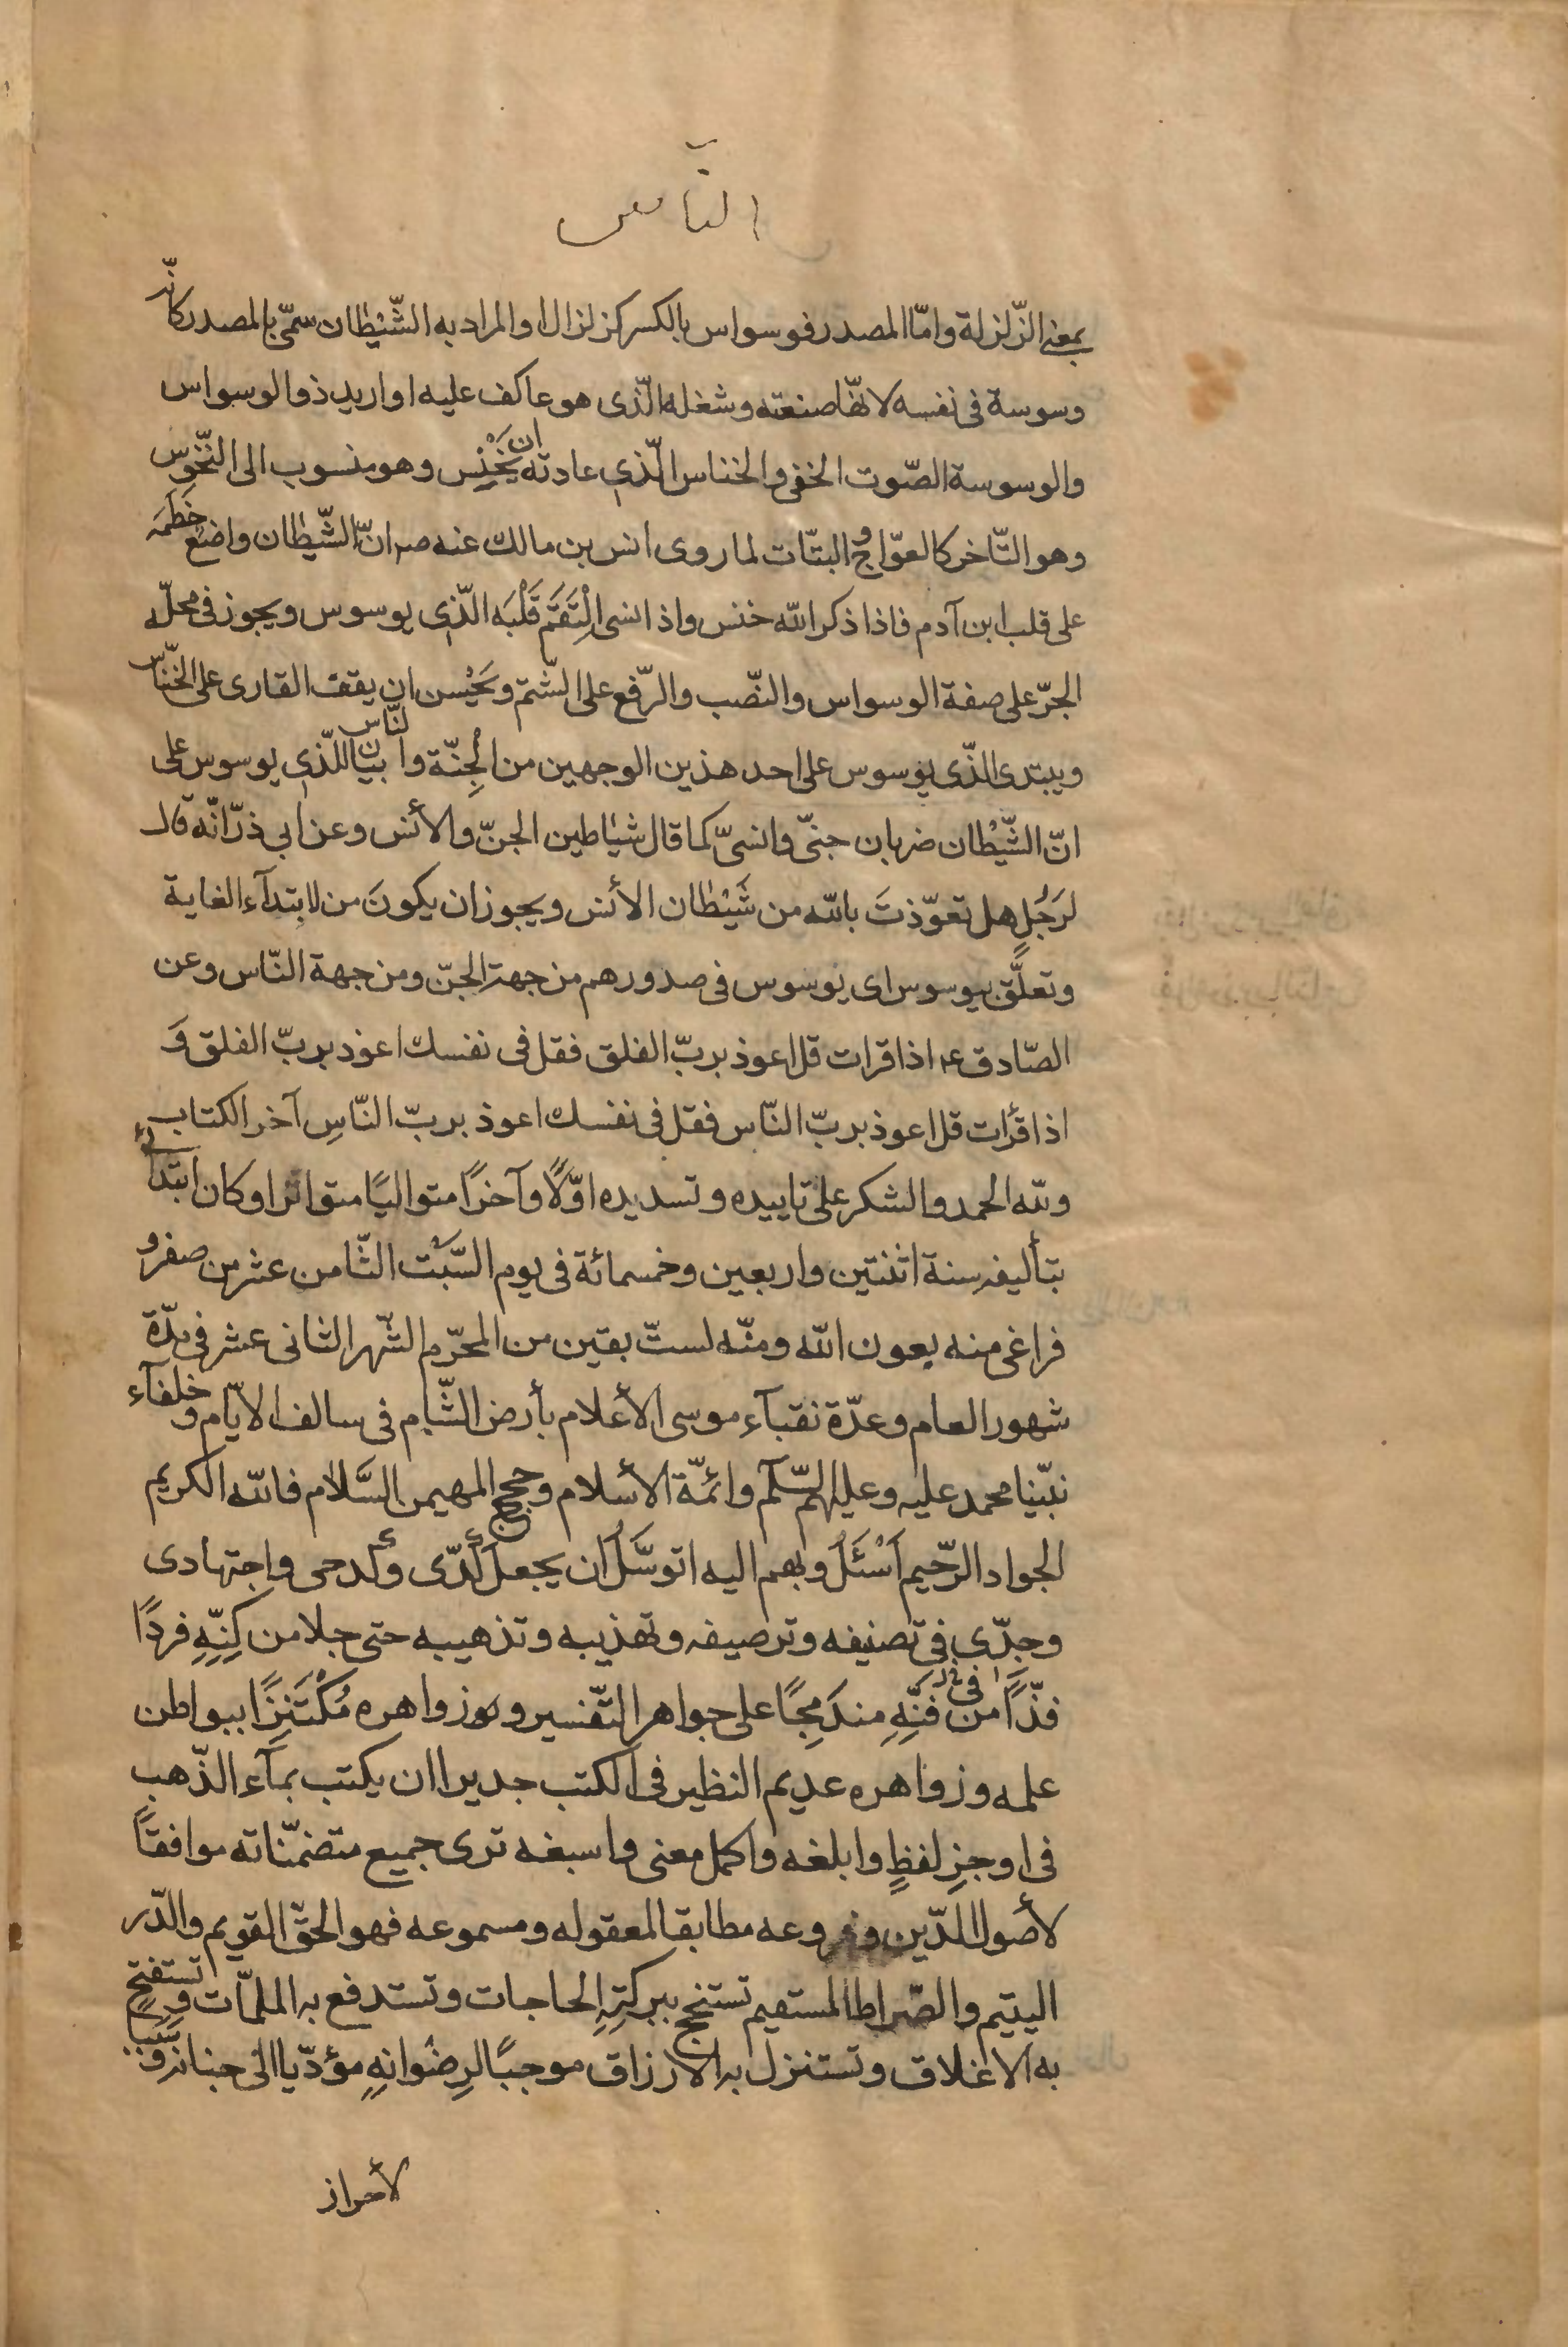 النّاس
بمعنى الزّلزلة وامّا المصدر فوسواس بالكسر كزلزال والمراد به الشّيطان سمّى بالمصدر كانّه
وسوسة فى نفسه لانّها صنعته وشغله الّذى هو عاكف عليه او اريد ذو الوسواس
والوسوسة الصّوت الخفى والخناس الّذى عادته ان يَخْنِس وهو منسوب الى الخنوس
وهو التّاخر كالعوّاج والبتّات لما روى انس بن مالك عنه ص انّ الشّيطان واضع خَطْمَه
على قلب ابن آدم فاذا ذكر الله خنس واذا نسى الْتَقَمَ قَلْبَه الّذى يوسوس ويجوز فى محلّه
الجرّ على صفة الوسواس والنّصب والرّفع على الشّتم ويَحْسن ان يقف القارى على الخنّاس
ويبتدى الّذى يوسوس على احد هذين الوجهين من الْجِنّة والنّاس بيان للّذى يوسوس على
انّ الشّيْطان ضربان جنىّ وانسىّ كما قال شياطين الجنّ والأنس وعن ابي ذرّ انّه قال
لرَجُلٍ هل تعوّذتَ بالله من شَيْطان الأنس ويجوز ان يكونَ من لابتدآء الغاية
وتعلّق بيوسوس اى يوسوس فى صدورهم من جهة الجنّ ومن جهة النّاس وعن
الصّادق ع اذا قرات قل اعوذ بربّ الفلق فقل فى نفسك اعوذ بربّ الفلق وَ
اذا قرأت قل اعوذ بربّ النّاس فقل فى نفسك اعوذ بربّ النّاسِ آخر الكتاب
ولله الحمد والشكر على تاييده وتسديده اوّلًا وآخرًا متواليًا متواترا وكان ابتدائى
بتأليفه سنة اثنتين واربعين وخمسمائة فى يوم السّبْت الثّامن عشر من صفر و
فراغى منه بعون الله ومنّه لستّ بقين من المحرّم الشّهر الثانى عشر فى عدّة
شهور العام وعدّة نقبآء موسى الأعلام بأرض الشّام فى سالف الايّام وخلفآء
نبّينا محمد عليه وعليهم السّلم وائمّة الأسلام وحجج المهيمن السَّلام فالله الكريم
الجواد الرّحيم اَسْئَلُ وبهم اليه اتوسَّلُ ان يجعل كدّى وكدحى واجتهادى
وجِدّى فى تصنيفه وترصيفه وتهذيبه وتذهيبه حتى جلا من كِنِّهِ فردًا
فذًّا من فى فَنِّهِ مندَمِجًا على جواهر التّفسير وزواهره مُكْتَنِزًا ببواطن
علمه وزواهره عديم النظير فى الكتب جديرا ان يكتب بمآء الذّهب
فى اوجزِ لفظٍ وابلغه واكمل معنى واسبغه ترى جميع متضمّناته موافقًا
لأصول الدّين وفروعه مطابقا لمعقوله ومسموعه فهو الحقّ القويم والدّر
اليتيم والصّراط المستقيم تستنجح ببركتِهِ الحاجات وتستدفع به الملمّات وتستفتح
به الاغلاق وتستنزل به الارزاق موجبًا لرِضْوانهِ مؤدّيا الى جنانه وسببا
لأحراز